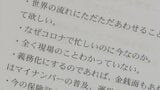 ・世界の流れにただただあわせること
て欲しい。
・なぜコロナで忙しいのに今なのか。
・全く現場のことわかっていない。
・義務化にするのであれば、金銭面もあ
はマイナンバーの普及、運
今の保険